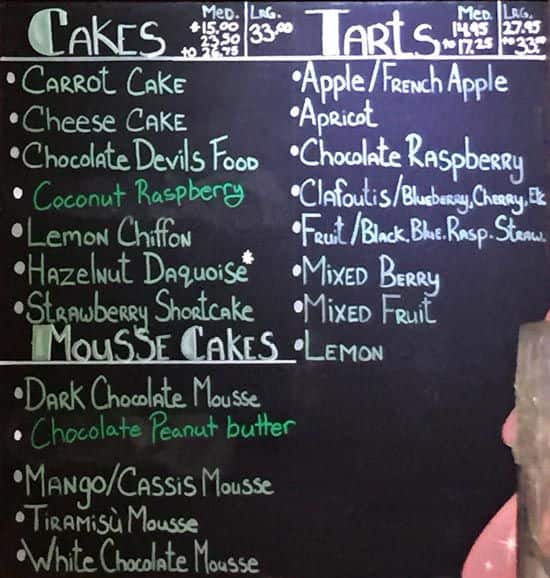 CAKES
MED. LRG.
$15.00 33.00
23.50
to 26.75
• CARROT CAKE
• CHEESE CAKE
• Chocolate Devils Food
• Coconut Raspberry
• Lemon Chiffon
• Hazelnut Daquoise*
• Strawberry Shortcake
MOUSSE CAKES
• Dark Chocolate Mousse
• Chocolate Peanut butter
• Mango/Cassis Mousse
• Tiramisù Mousse
• White Chocolate Mousse
TARTS
MED. LRG.
14.95 27.95
to 17.25 to 33.00
• Apple/French Apple
• Apricot
• Chocolate Raspberry
• Clafoutis/Blueberry, Cherry, Etc
• Fruit/Black. Blue. Rasp. Straw.
• Mixed Berry
• Mixed Fruit
• Lemon